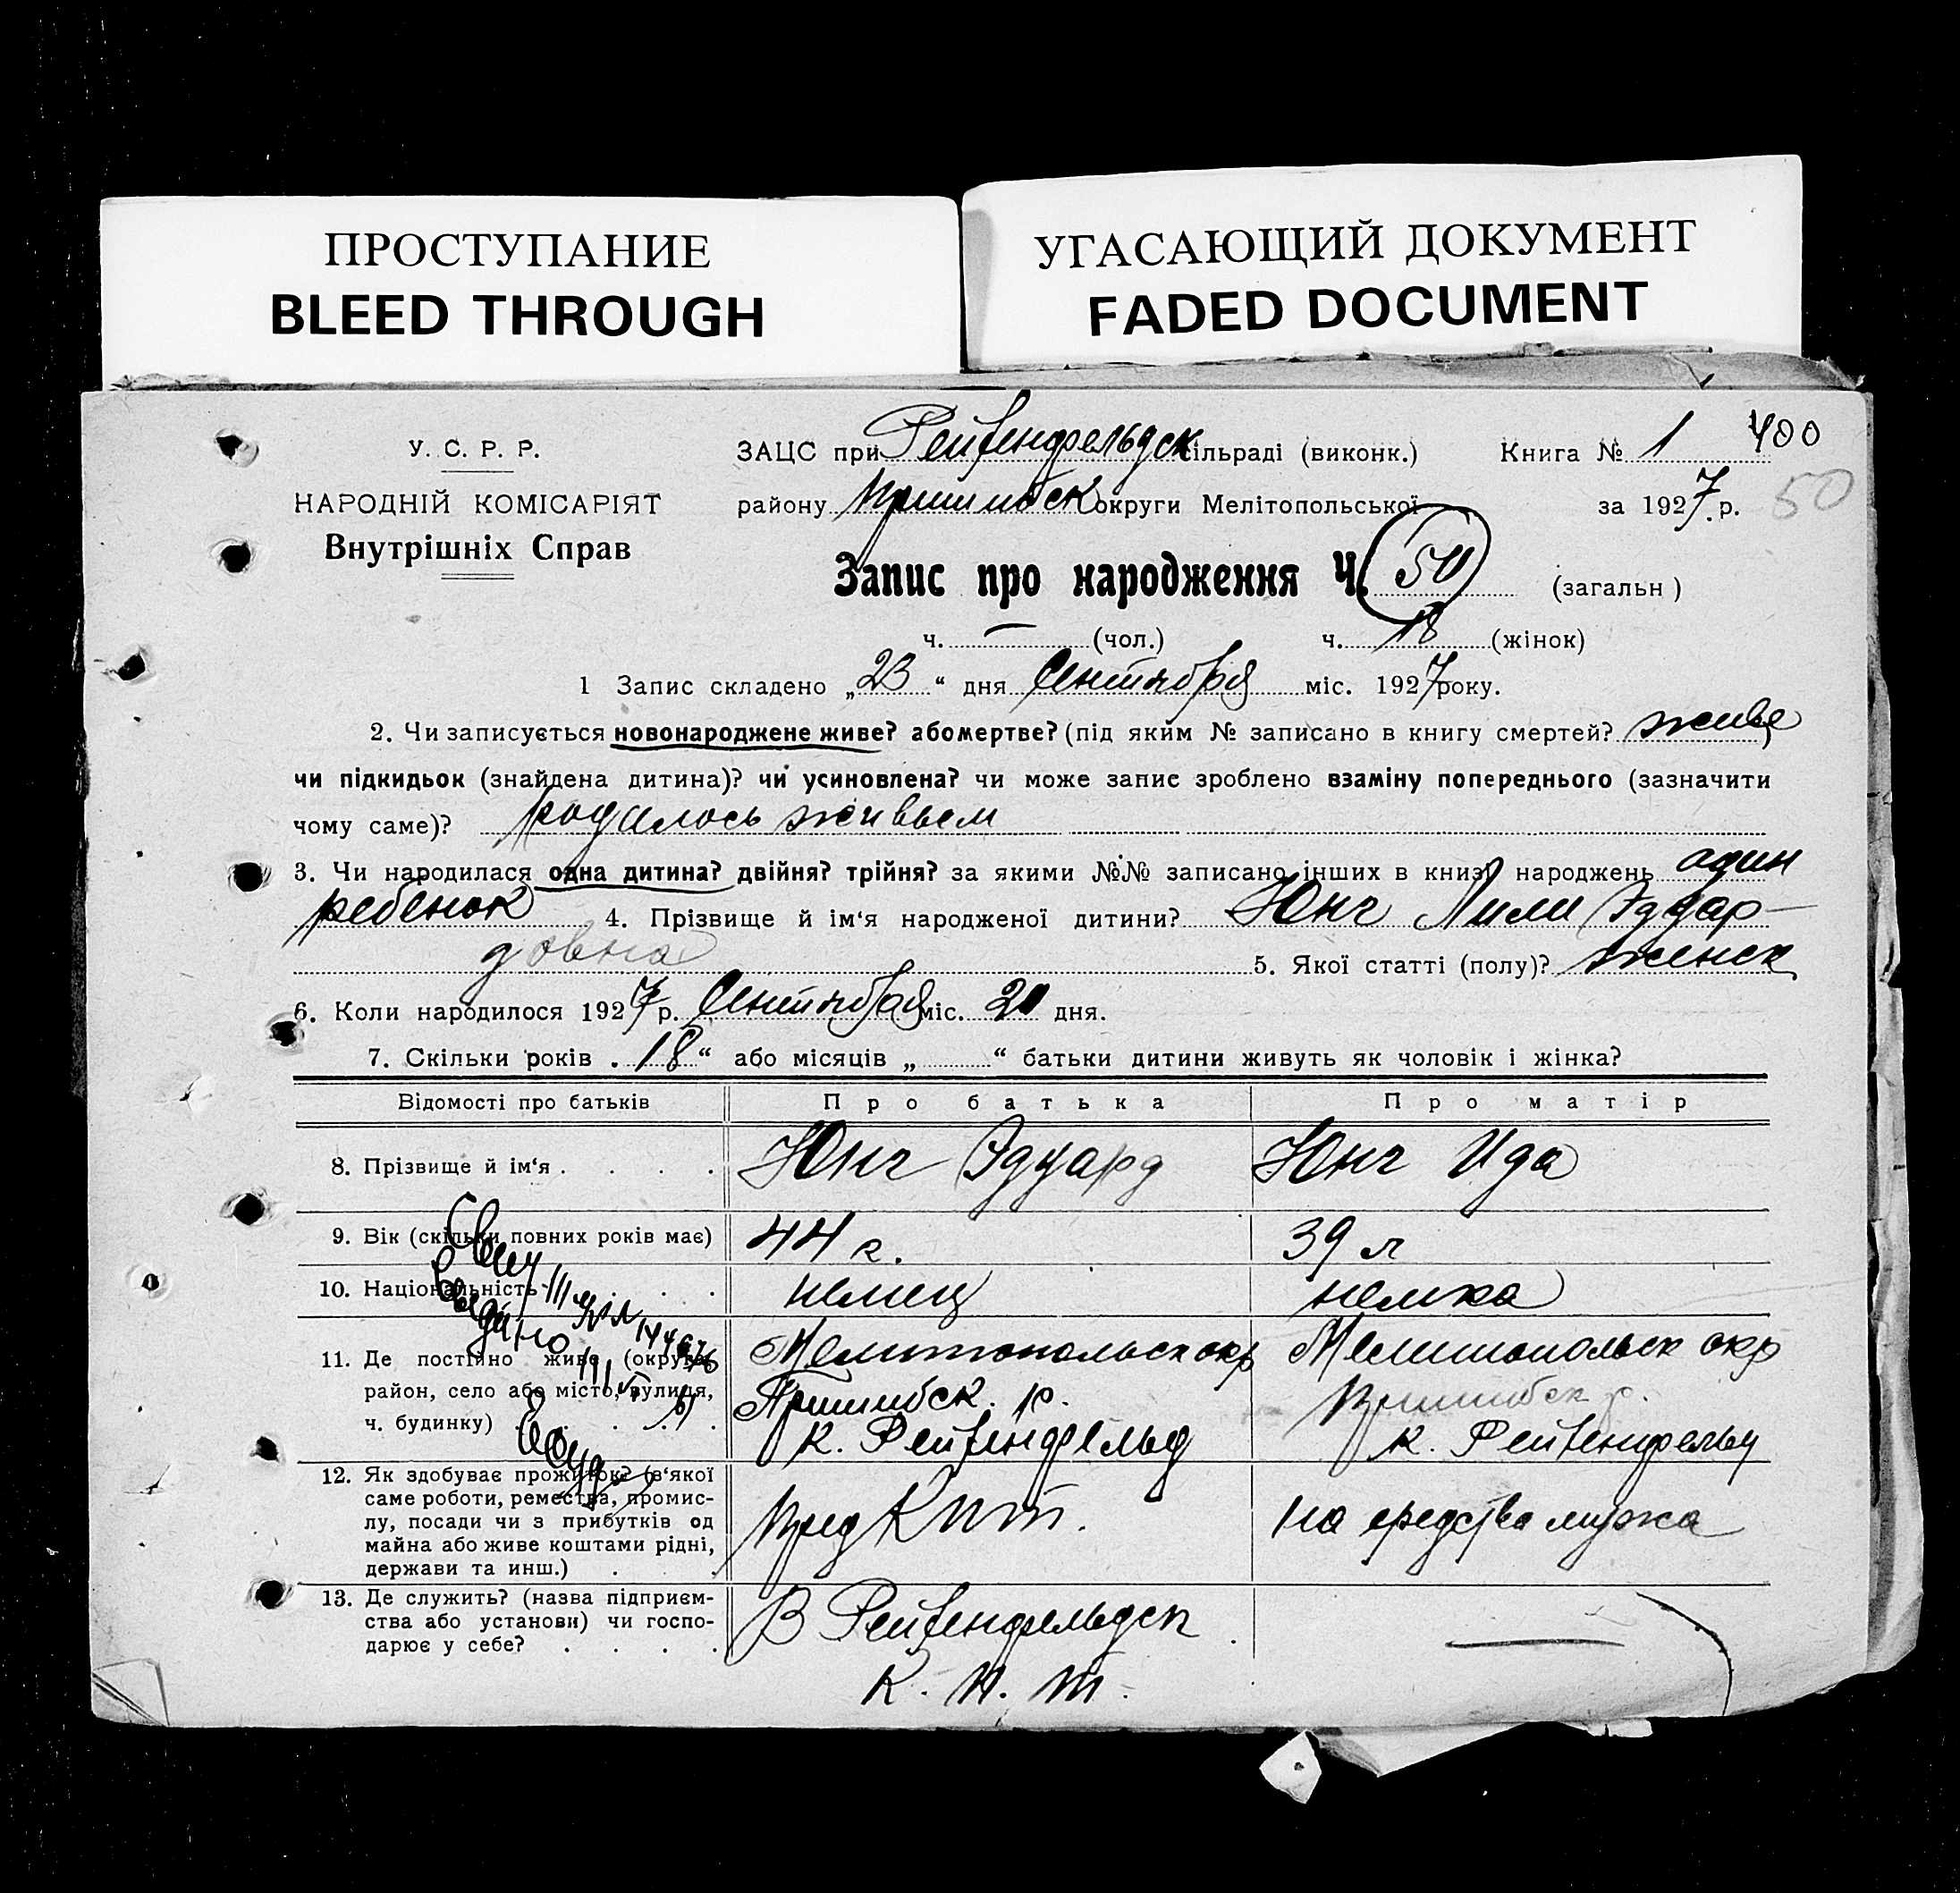 ПРОСТУПАНИЕ
BLEED THROUGH
УГАСАЮЩИЙ ДОКУМЕНТ
FADED DOCUMENT
У. С. Р. Р.
НАРОДНІЙ КОМІСАРІЯТ
Внутрішніх Справ
ЗАЦС при Рейфенфельдск сільраді (виконк.) Книга № 1 400
району Пришибск округи Мелітопольської за 1927 р. 50
Запис про народження Ч. 50 (загальн)
ч. — (чол.) ч. 18 (жінок)
1 Запис складено „23“ дня Сентября міс. 1927 року.
2. Чи записується новонароджене живе? або мертве? (під яким № записано в книгу смертей? живе
чи підкидьок (знайдена дитина)? чи усиновлена? чи може запис зроблено взаміну попереднього (зазначити
чому саме)? родилось живьем
3. Чи народилася одна дитина? двійня? трійня? за якими №№ записано інших в книзі народжень один
ребенок 4. Прізвище й ім‘я народженої дитини? Юнг Лили Эдуар-
довна 5. Якої статті (полу)? женск
6. Коли народилося 1927 р. Сентября міс. 20 дня.
7. Скільки років „18“ або місяців „ “ батьки дитини живуть як чоловік і жінка?
Відомості про батьків Про батька Про матір
8. Прізвище й ім‘я . . . . Юнг Эдуард Юнг Ида
9. Вік (скільки повних років має) 44 г. 39 л
10. Національність . . . немец немка
11. Де постійно живе (округа,
район, село або місто, вулиця,
ч. будинку) . . . .
Мелитопольск окр
Пришибск. р.
к. Рейфенфельд
Мелитопольск окр
Пришибск р.
к. Рейфенфельд
12. Як здобуває прожиток? (з‘якої
саме роботи, ремества, промис-
лу, посади чи з прибутків од
майна або живе коштами рідні,
держави та инш.) . .
Пред Кпт.
на средства мужа
13. Де служить? (назва підприєм-
ства або установи) чи госпо-
дарює у себе? . . . .
В Рейфенфельдск
К. п. т.